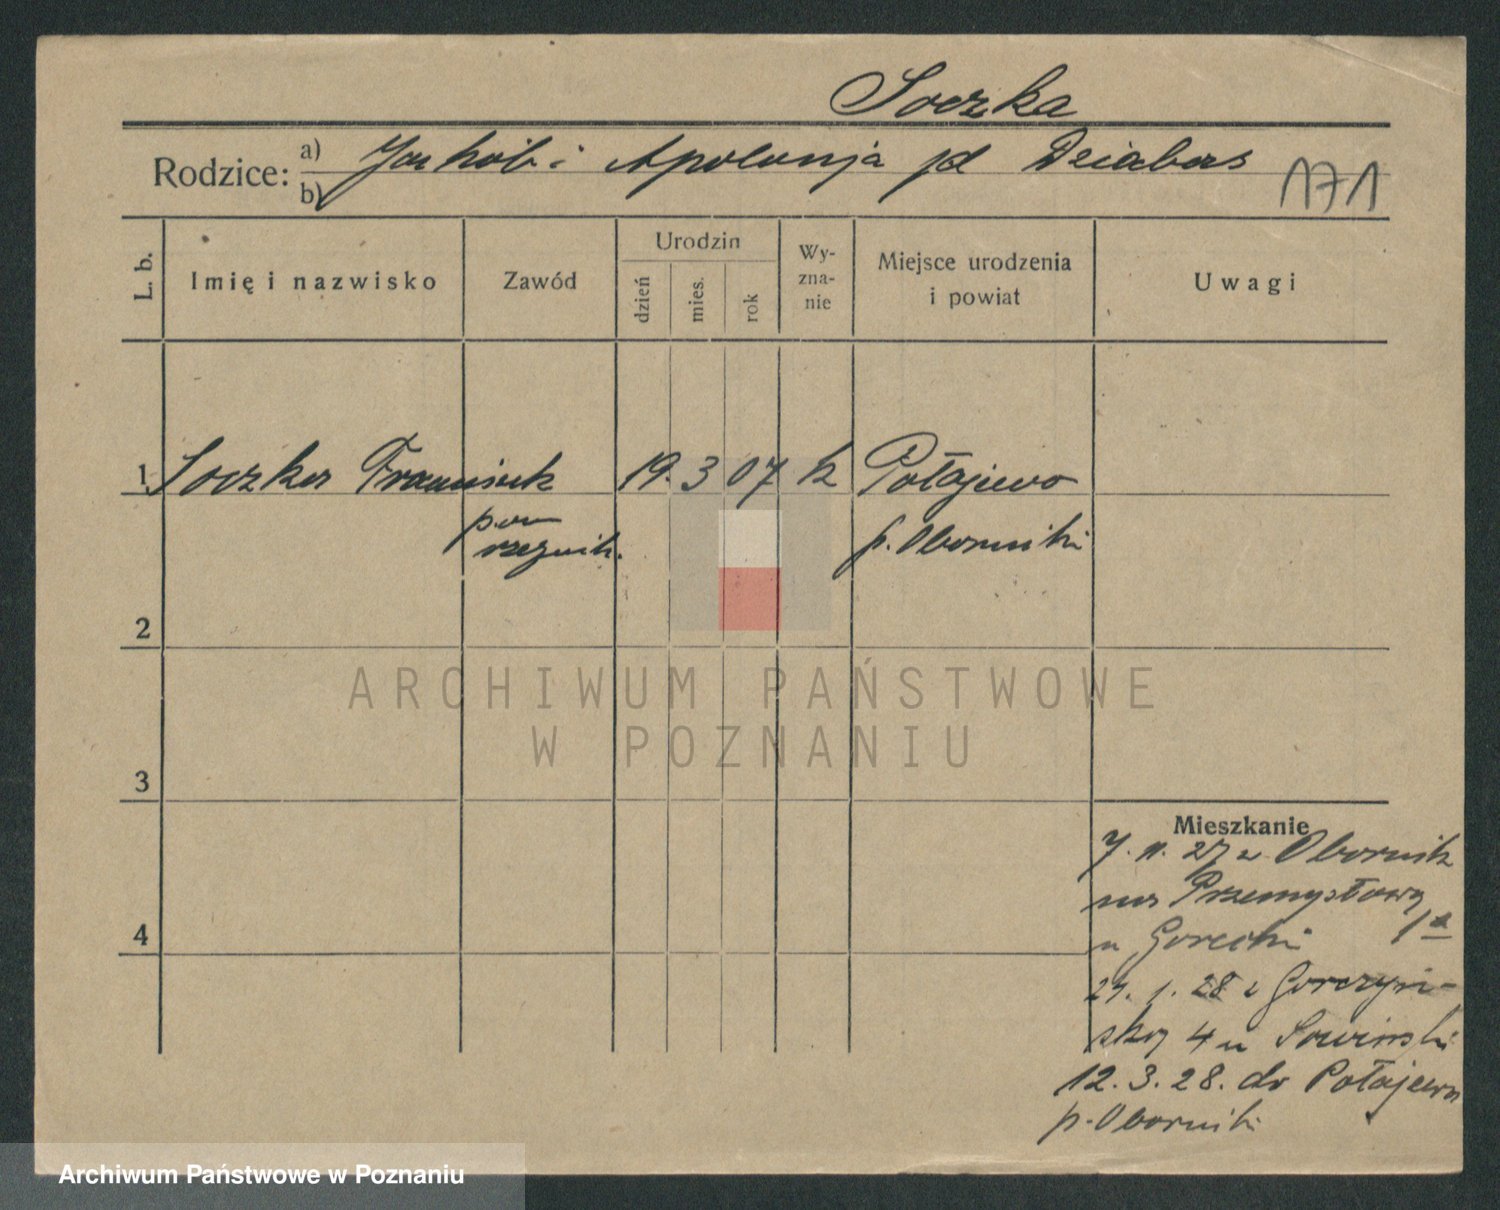 Soczka
Rodzice: a) Jakób i Apolonja p d Dziabas
b)
171
L. b. Imię i nazwisko Zawód Urodzin dzień mies. rok Wy-zna-nie Miejsce urodzenia i powiat Uwagi
1 Soczka Franciszek 19. 3 07 k Połajewo
pom rzeźnik. p. Oborniki
2
3
4
Mieszkanie
7. 11. 27 z Obornik
na Przemysłową
u Górecki 1a
24. 1. 28 z Gorczyń-
ską 4 u Sowiński
12. 3. 28. do Połajewa
p. Oborniki
ARCHIWUM PAŃSTWOWE
W POZNANIU
Archiwum Państwowe w Poznaniu